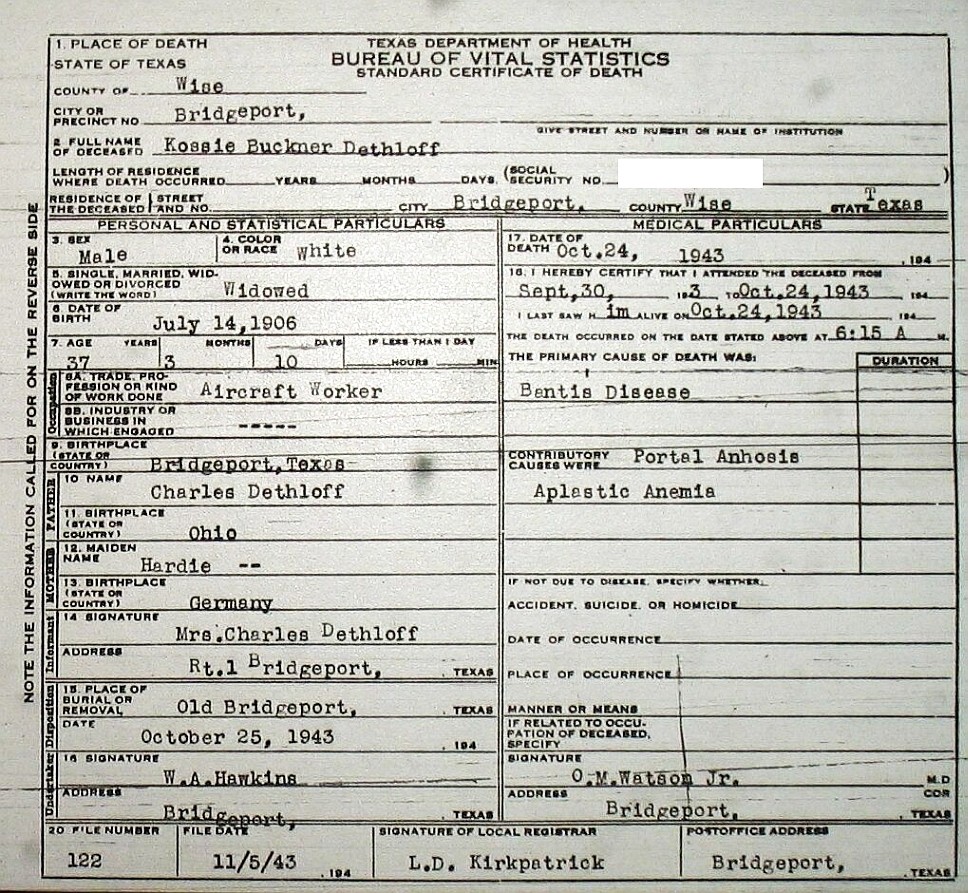 TEXAS DEPARTMENT OF HEALTH
BUREAU OF VITAL STATISTICS
STANDARD CERTIFICATE OF DEATH
1. PLACE OF DEATH
STATE OF TEXAS
COUNTY OF Wise
CITY OR PRECINCT NO. Bridgeport,
GIVE STREET AND NUMBER OR NAME OF INSTITUTION
2. FULL NAME OF DECEASED Kossie Buckner Dethloff
LENGTH OF RESIDENCE WHERE DEATH OCCURRED YEARS MONTHS DAYS. (SOCIAL SECURITY NO. )
RESIDENCE OF THE DECEASED STREET AND NO. CITY Bridgeport, COUNTY Wise STATE Texas
NOTE THE INFORMATION CALLED FOR ON THE REVERSE SIDE
PERSONAL AND STATISTICAL PARTICULARS
3. SEX Male 4. COLOR OR RACE White
5. SINGLE, MARRIED, WIDOWED OR DIVORCED (WRITE THE WORD) Widowed
6. DATE OF BIRTH July 14,1906
7. AGE YEARS MONTHS DAYS IF LESS THAN 1 DAY
37 3 10 HOURS MIN
Occupation
8A. TRADE, PROFESSION OR KIND OF WORK DONE Aircraft Worker
8B. INDUSTRY OR BUSINESS IN WHICH ENGAGED -----
9. BIRTHPLACE (STATE OR COUNTRY) Bridgeport,Texas
FATHER
10 NAME Charles Dethloff
11. BIRTHPLACE (STATE OR COUNTRY) Ohio
MOTHER
12. MAIDEN NAME Hardie --
13. BIRTHPLACE (STATE OR COUNTRY) Germany
Informant
14 SIGNATURE Mrs.Charles Dethloff
ADDRESS Rt.1 Bridgeport, . TEXAS
Disposition
15. PLACE OF BURIAL OR REMOVAL Old Bridgeport, . TEXAS
DATE October 25, 1943 . 194
Undertaker
16 SIGNATURE W.A.Hawkins
ADDRESS Bridgeport, . TEXAS
MEDICAL PARTICULARS
17. DATE OF DEATH Oct.24, 1943 . 194
18. I HEREBY CERTIFY THAT I ATTENDED THE DECEASED FROM
Sept,30, 193 TO Oct.24,1943 . 194
I LAST SAW H im ALIVE ON Oct.24,1943 194
THE DEATH OCCURRED ON THE DATE STATED ABOVE AT 6:15 A M.
THE PRIMARY CAUSE OF DEATH WAS: DURATION
Bantis Disease
CONTRIBUTORY CAUSES WERE Portal Anhosis
Aplastic Anemia
IF NOT DUE TO DISEASE, SPECIFY WHETHER
ACCIDENT, SUICIDE, OR HOMICIDE
DATE OF OCCURRENCE
PLACE OF OCCURRENCE
MANNER OR MEANS
IF RELATED TO OCCUPATION OF DECEASED, SPECIFY
SIGNATURE O.M.Watson Jr. M.D
COR
ADDRESS Bridgeport, . TEXAS
20 FILE NUMBER FILE DATE SIGNATURE OF LOCAL REGISTRAR POSTOFFICE ADDRESS
122 11/5/43 . 194 L.D. Kirkpatrick Bridgeport, . TEXAS